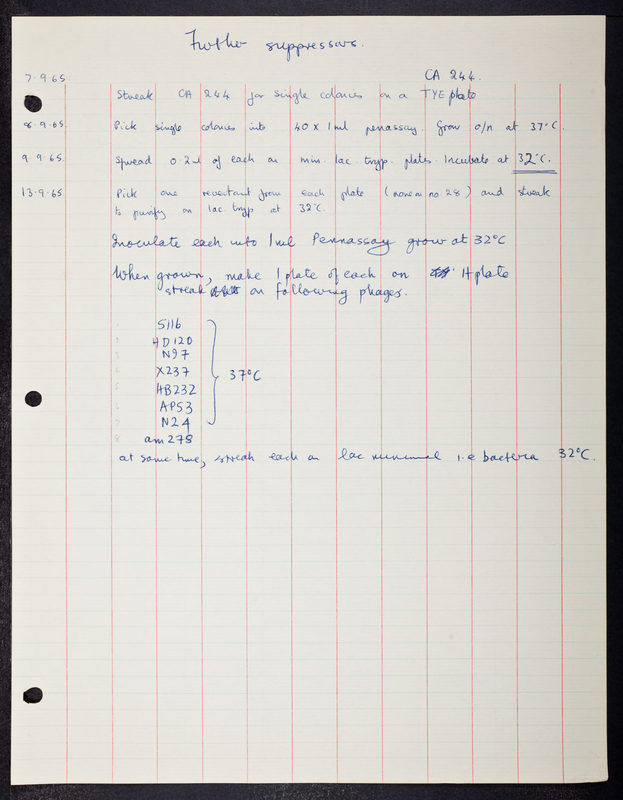 Further suppressors.
7.9.65. CA 244.
Streak CA 244 for single colonies on a TYE plate
8.9.65. Pick single colonies into 40 x 1 ml penassay. Grow o/n at 37°C.
9.9.65. Spread 0.2 ml of each on min. lac. tryp. plates. Incubate at 32°C.
13.9.65 Pick one revertant from each plate (none on no. 28) and streak
to purify on lac. tryp at 32°C.
Inoculate each into 1ml Pennassay grow at 32°C
When grown, make 1 plate of each on H plate
streak on following phages.
1 S116
2 HD120
3 N97
4 X237
5 HB232
6 AP53
7 N24
37°C
8 am278
at same time, streak each on lac minimal i.e bacteria 32°C.